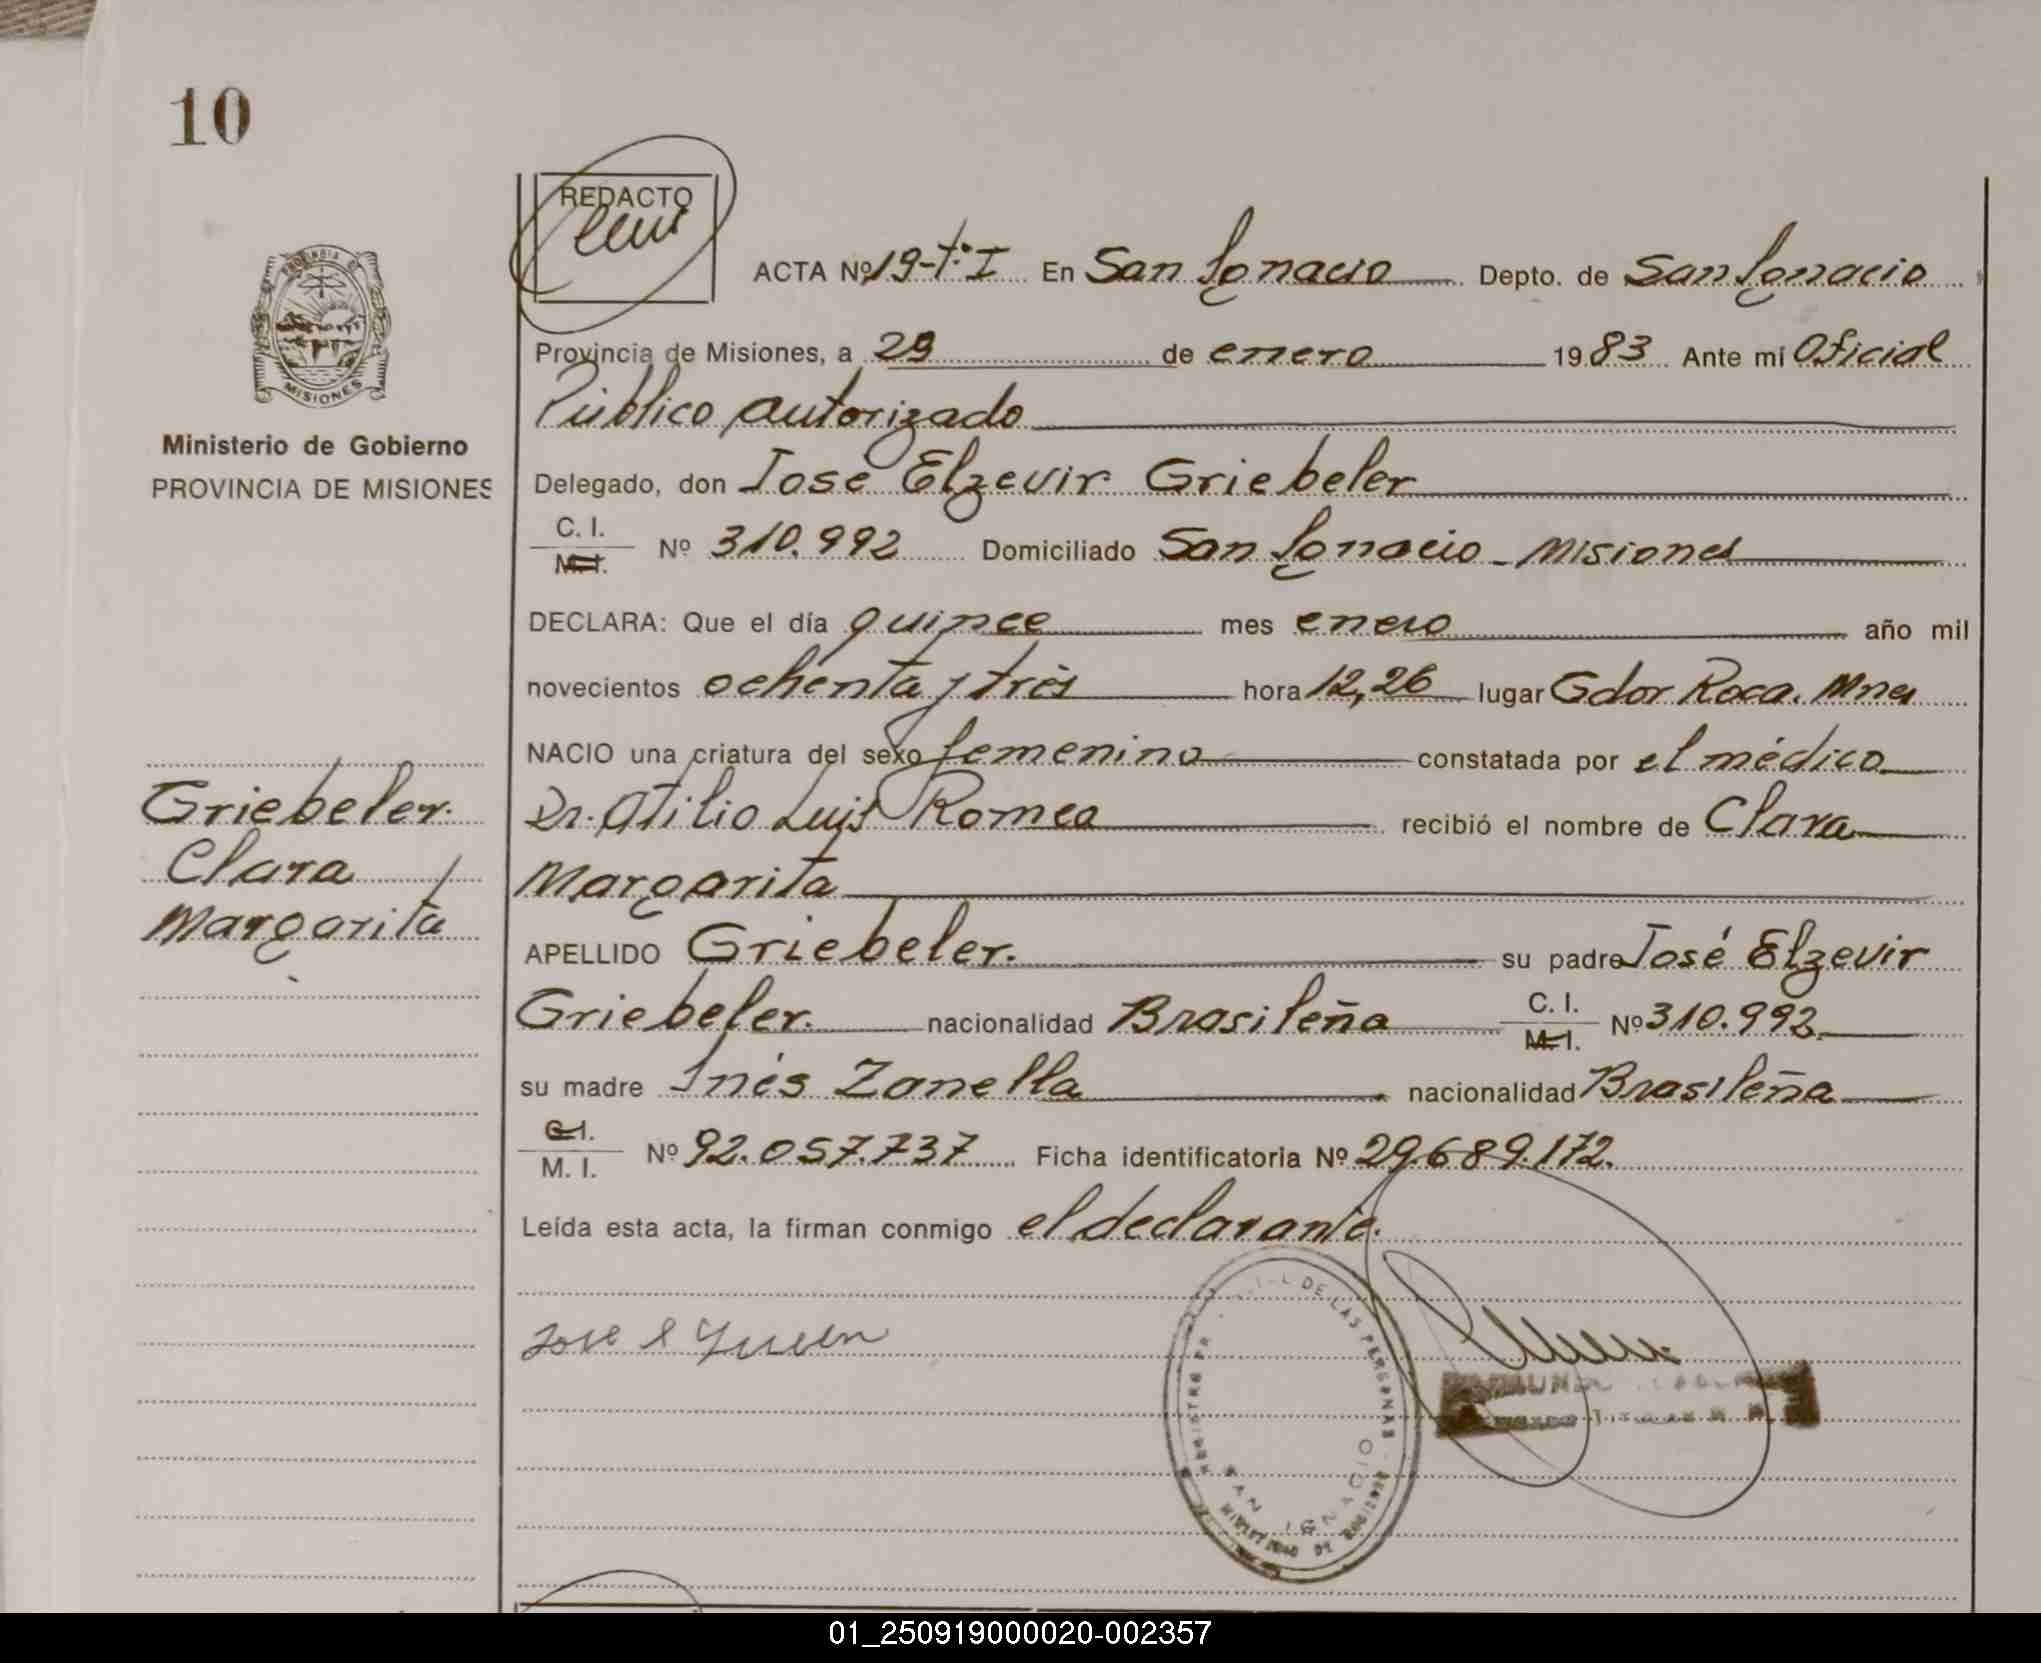 10
REDACTO
ACTA Nº 19-t:I En San Ignacio Depto. de San Ignacio
Provincia de Misiones, a 29 de enero 1983 Ante mí Oficial
Público autorizado
Delegado, don José Elzevir Griebeler
C. I. M.I. Nº 310.992 Domiciliado San Ignacio - Misiones
DECLARA: Que el día quince mes enero año mil
novecientos ochenta y tres hora 12,26 lugar Gdor Roca. Mnes
NACIO una criatura del sexo femenino constatada por el médico
Dr. Atilio Luis Romea recibió el nombre de Clara
Margarita
APELLIDO Griebeler. su padre José Elzevir
Griebeler. nacionalidad Brasileña C. I. M.I. Nº 310.992
su madre Inés Zanella nacionalidad Brasileña
C.I. M. I. Nº 92.057.737 Ficha identificatoria Nº 29.689.172.
Leída esta acta, la firman conmigo el declarante.
PROVINCIA DE
MISIONES
Ministerio de Gobierno
PROVINCIA DE MISIONES
Griebeler.
Clara
Margarita
DE LAS PERSONAS
SAN IGNACIO
01_250919000020-002357